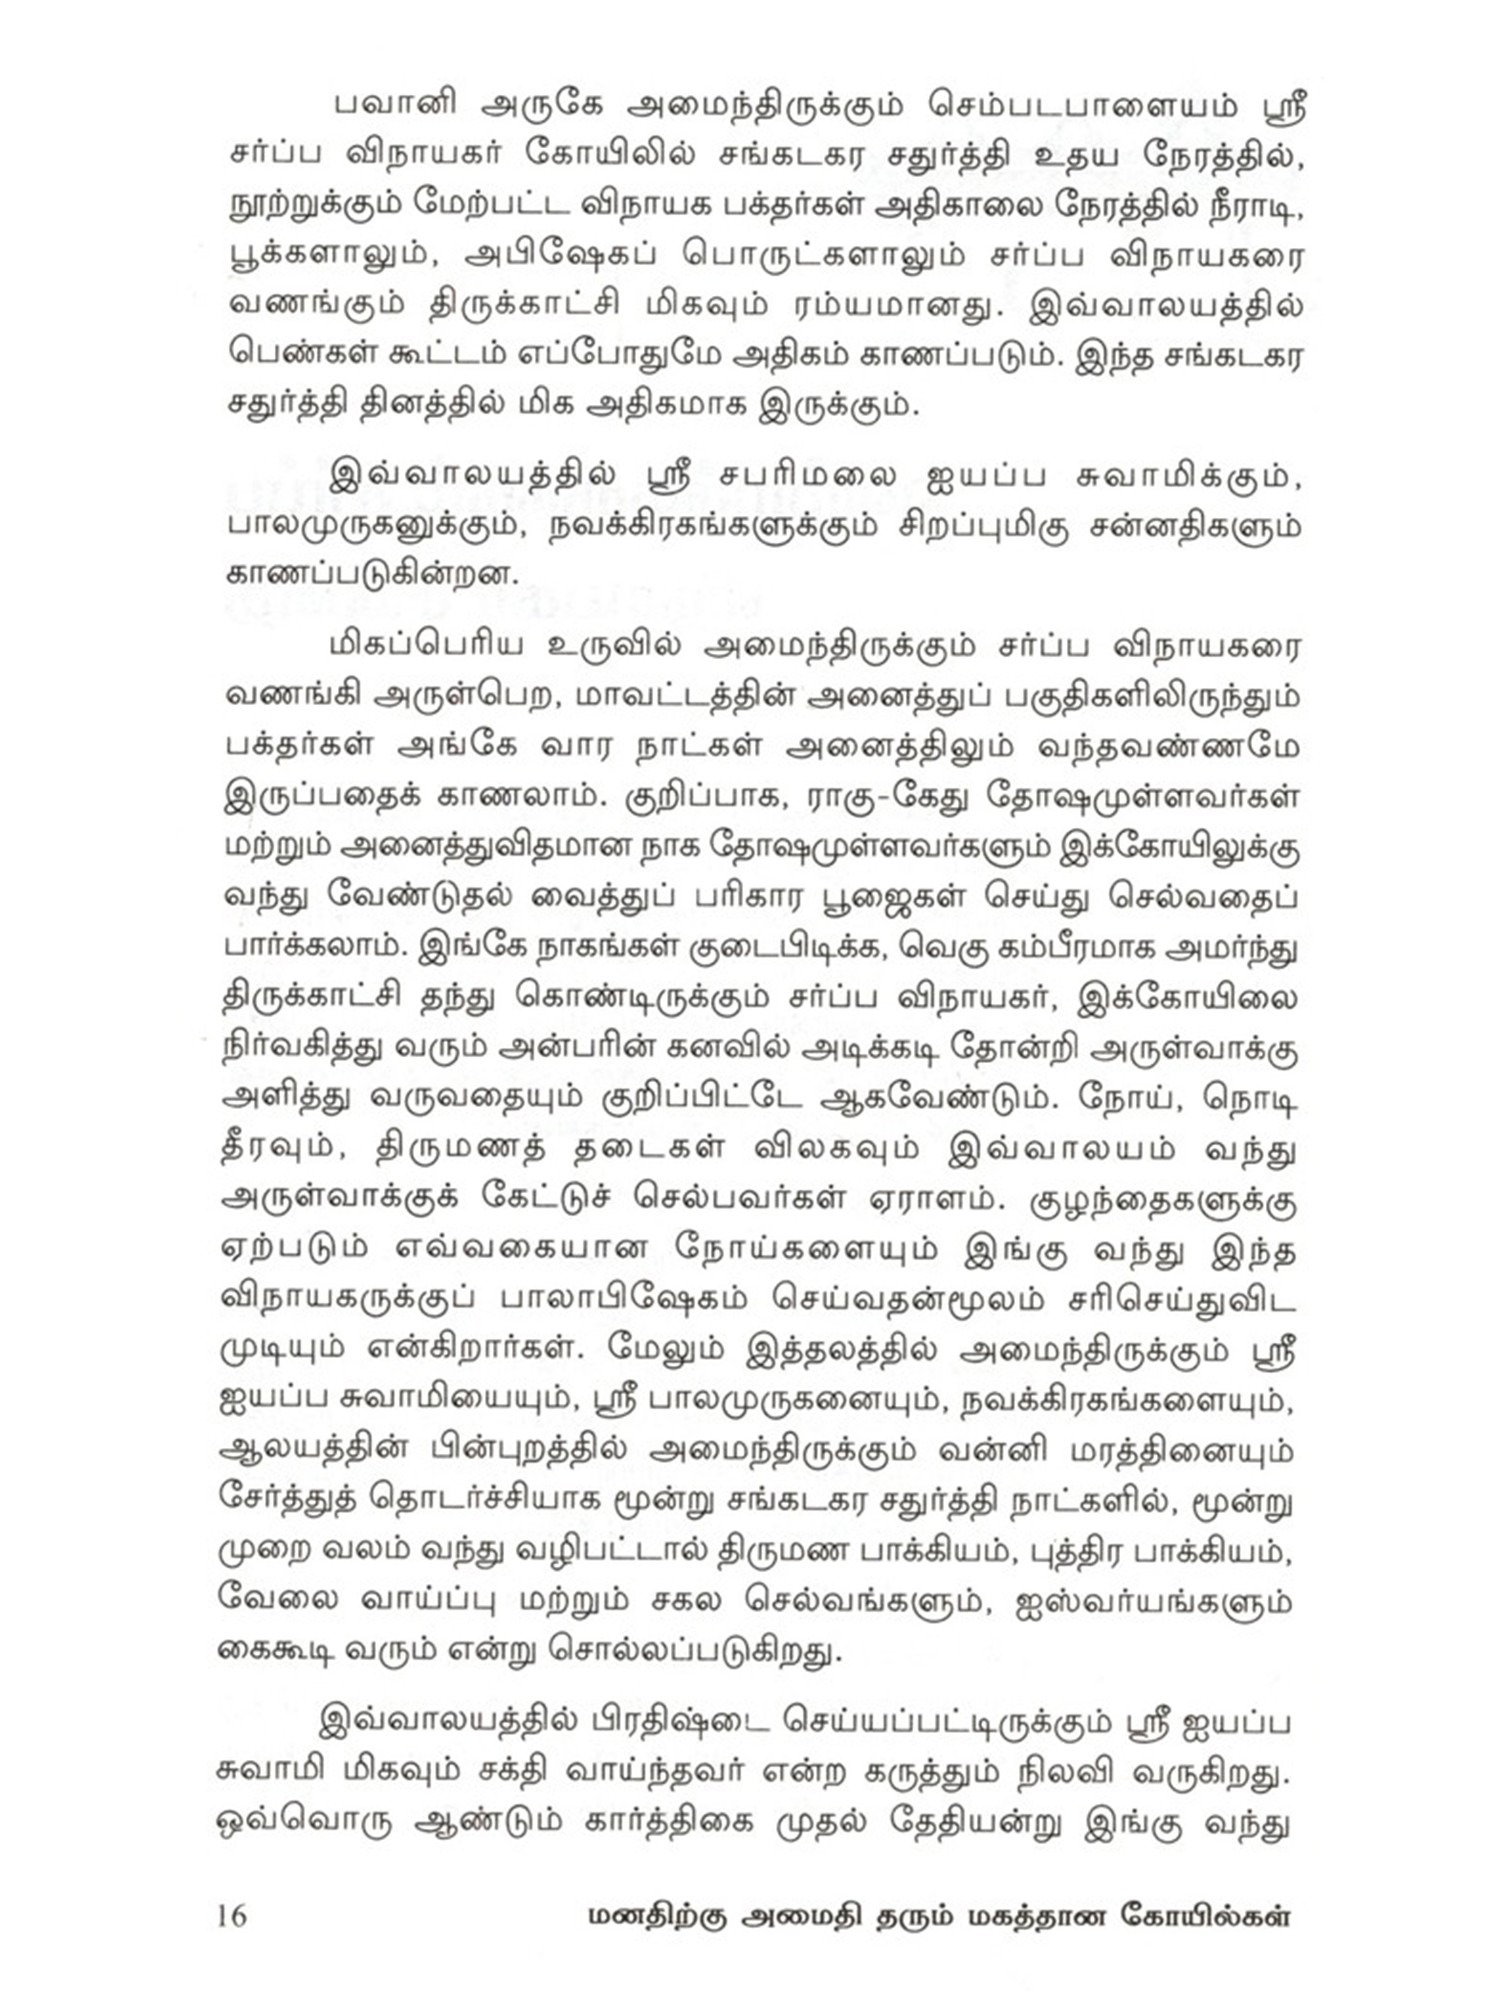 பவானி அருகே அமைந்திருக்கும் செம்படபாளையம் ஸ்ரீ
சர்ப்ப விநாயகர் கோயிலில் சங்கடகர சதுர்த்தி உதய நேரத்தில்,
நூற்றுக்கும் மேற்பட்ட விநாயக பக்தர்கள் அதிகாலை நேரத்தில் நீராடி,
பூக்களாலும், அபிஷேகப் பொருட்களாலும் சர்ப்ப விநாயகரை
வணங்கும் திருக்காட்சி மிகவும் ரம்யமானது. இவ்வாலயத்தில்
பெண்கள் கூட்டம் எப்போதுமே அதிகம் காணப்படும். இந்த சங்கடகர
சதுர்த்தி தினத்தில் மிக அதிகமாக இருக்கும்.
இவ்வாலயத்தில் ஸ்ரீ சபரிமலை ஐயப்ப சுவாமிக்கும்,
பாலமுருகனுக்கும், நவக்கிரகங்களுக்கும் சிறப்புமிகு சன்னதிகளும்
காணப்படுகின்றன.
மிகப்பெரிய உருவில் அமைந்திருக்கும் சர்ப்ப விநாயகரை
வணங்கி அருள்பெற, மாவட்டத்தின் அனைத்துப் பகுதிகளிலிருந்தும்
பக்தர்கள் அங்கே வார நாட்கள் அனைத்திலும் வந்தவண்ணமே
இருப்பதைக் காணலாம். குறிப்பாக, ராகு-கேது தோஷமுள்ளவர்கள்
மற்றும் அனைத்துவிதமான நாக தோஷமுள்ளவர்களும் இக்கோயிலுக்கு
வந்து வேண்டுதல் வைத்துப் பரிகார பூஜைகள் செய்து செல்வதைப்
பார்க்கலாம். இங்கே நாகங்கள் குடைபிடிக்க, வெகு கம்பீரமாக அமர்ந்து
திருக்காட்சி தந்து கொண்டிருக்கும் சர்ப்ப விநாயகர், இக்கோயிலை
நிர்வகித்து வரும் அன்பரின் கனவில் அடிக்கடி தோன்றி அருள்வாக்கு
அளித்து வருவதையும் குறிப்பிட்டே ஆகவேண்டும். நோய், நொடி
தீரவும், திருமணத் தடைகள் விலகவும் இவ்வாலயம் வந்து
அருள்வாக்குக் கேட்டுச் செல்பவர்கள் ஏராளம். குழந்தைகளுக்கு
ஏற்படும் எவ்வகையான நோய்களையும் இங்கு வந்து இந்த
விநாயகருக்குப் பாலாபிஷேகம் செய்வதன்மூலம் சரிசெய்துவிட
முடியும் என்கிறார்கள். மேலும் இத்தலத்தில் அமைந்திருக்கும் ஸ்ரீ
ஐயப்ப சுவாமியையும், ஸ்ரீ பாலமுருகனையும், நவக்கிரகங்களையும்,
ஆலயத்தின் பின்புறத்தில் அமைந்திருக்கும் வன்னி மரத்தினையும்
சேர்த்துத் தொடர்ச்சியாக மூன்று சங்கடகர சதுர்த்தி நாட்களில், மூன்று
முறை வலம் வந்து வழிபட்டால் திருமண பாக்கியம், புத்திர பாக்கியம்,
வேலை வாய்ப்பு மற்றும் சகல செல்வங்களும், ஐஸ்வர்யங்களும்
கைகூடி வரும் என்று சொல்லப்படுகிறது.
இவ்வாலயத்தில் பிரதிஷ்டை செய்யப்பட்டிருக்கும் ஸ்ரீ ஐயப்ப
சுவாமி மிகவும் சக்தி வாய்ந்தவர் என்ற கருத்தும் நிலவி வருகிறது.
ஒவ்வொரு ஆண்டும் கார்த்திகை முதல் தேதியன்று இங்கு வந்து
16 மனதிற்கு அமைதி தரும் மகத்தான கோயில்கள்